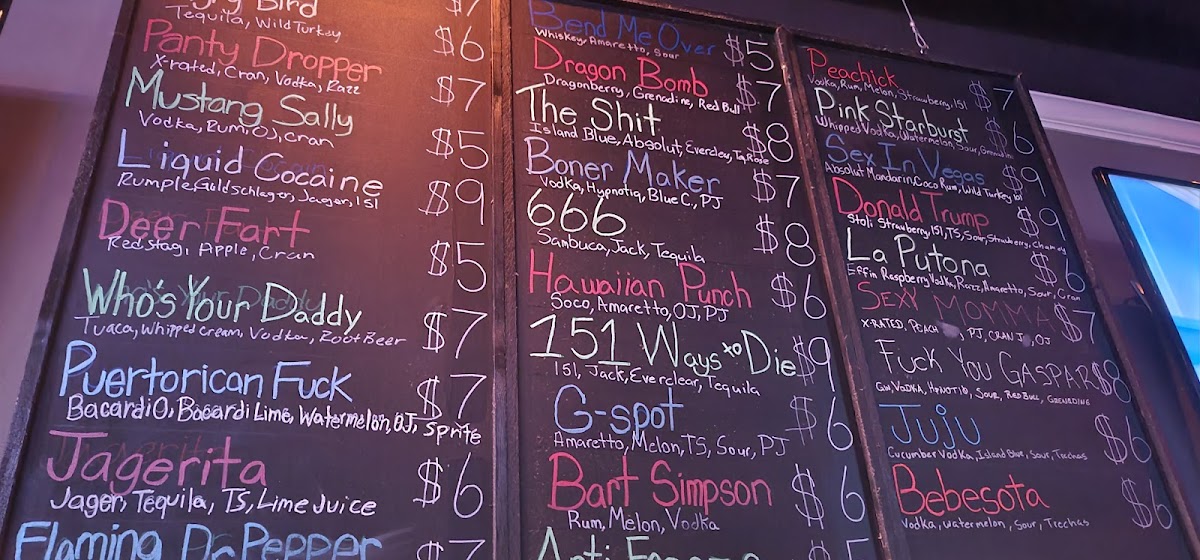 Bird $7
Tequila, Wild Turkey
Panty Dropper $6
X-rated, Cran, Vodka, Razz
Mustang Sally $7
Vodka, Rum, OJ, Cran
Liquid Cocaine $5
Rumple, Guldschlager, Jaeger, 151
Deer Fart $9
Red Stag, Apple, Cran
$5
Who's Your Daddy $7
Tuaca, Whipped cream, Vodka, Root Beer
Puertorican Fuck $7
Bacardi O, Bacardi Lime, Watermelon, OJ, Sprite
Jagerita $6
Jager, Tequila, TS, Lime Juice
Flaming Dr Pepper $7
Bend Me Over $5
Whiskey, Amaretto, Sour
Dragon Bomb $7
Dragonberry, Grenadine, Red Bull
The Shit $8
Island Blue, Absolut, Everclev, Tq Rose
Boner Maker $7
Vodka, Hypnotiq, Blue C., PJ
666 $8
Sambuca, Jack, Tequila
Hawaiian Punch $6
Soco, Amaretto, OJ, PJ
151 Ways to Die $9
151, Jack, Everclear, Tequila
G-spot $6
Amaretto, Melon, TS, Sour, PJ
Bart Simpson $6
Rum, Melon, Vodka
Anti $5
Peachick $7
Vodka, Rum, Melon, Strawberry, 151
Pink Starburst $6
Whipped Vodka, Watermelon, Sour, Grenadine
Sex In Vegas $9
Absolut Mandarin, Coco Rum, Wild Turkey 101
Donald Trump $9
Stoli Strawberry, 151, TS, Sour, Strawberry,
La Putona $6
Effin Raspberry Vodka, Razz, Amaretto, Sour, Cran
Sexy Momma $7
X-Rated, Peach, PJ, Cran J, OJ
Fuck You Gaspar $8
Gin, Vodka, Hpnotiq, Sour, Red Bull, Grenadine
Juju $6
Cucumber Vodka, Island Blue, Sour, Trechas
Bebesota $6
Vodka, Watermelon, Sour, Trechas